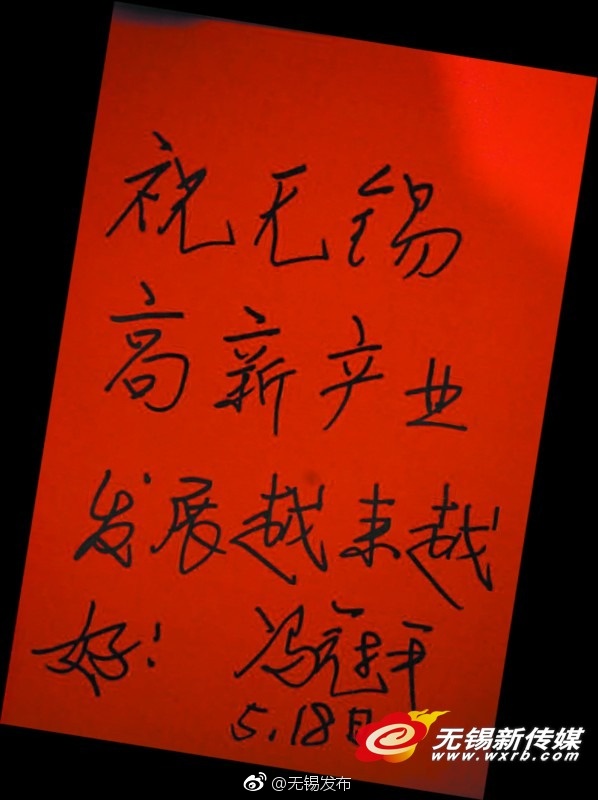 祝无锡
高新产业
发展越来越
好！ 冯冠平
5.18日
无锡新传媒
www.wxrb.com
@无锡发布